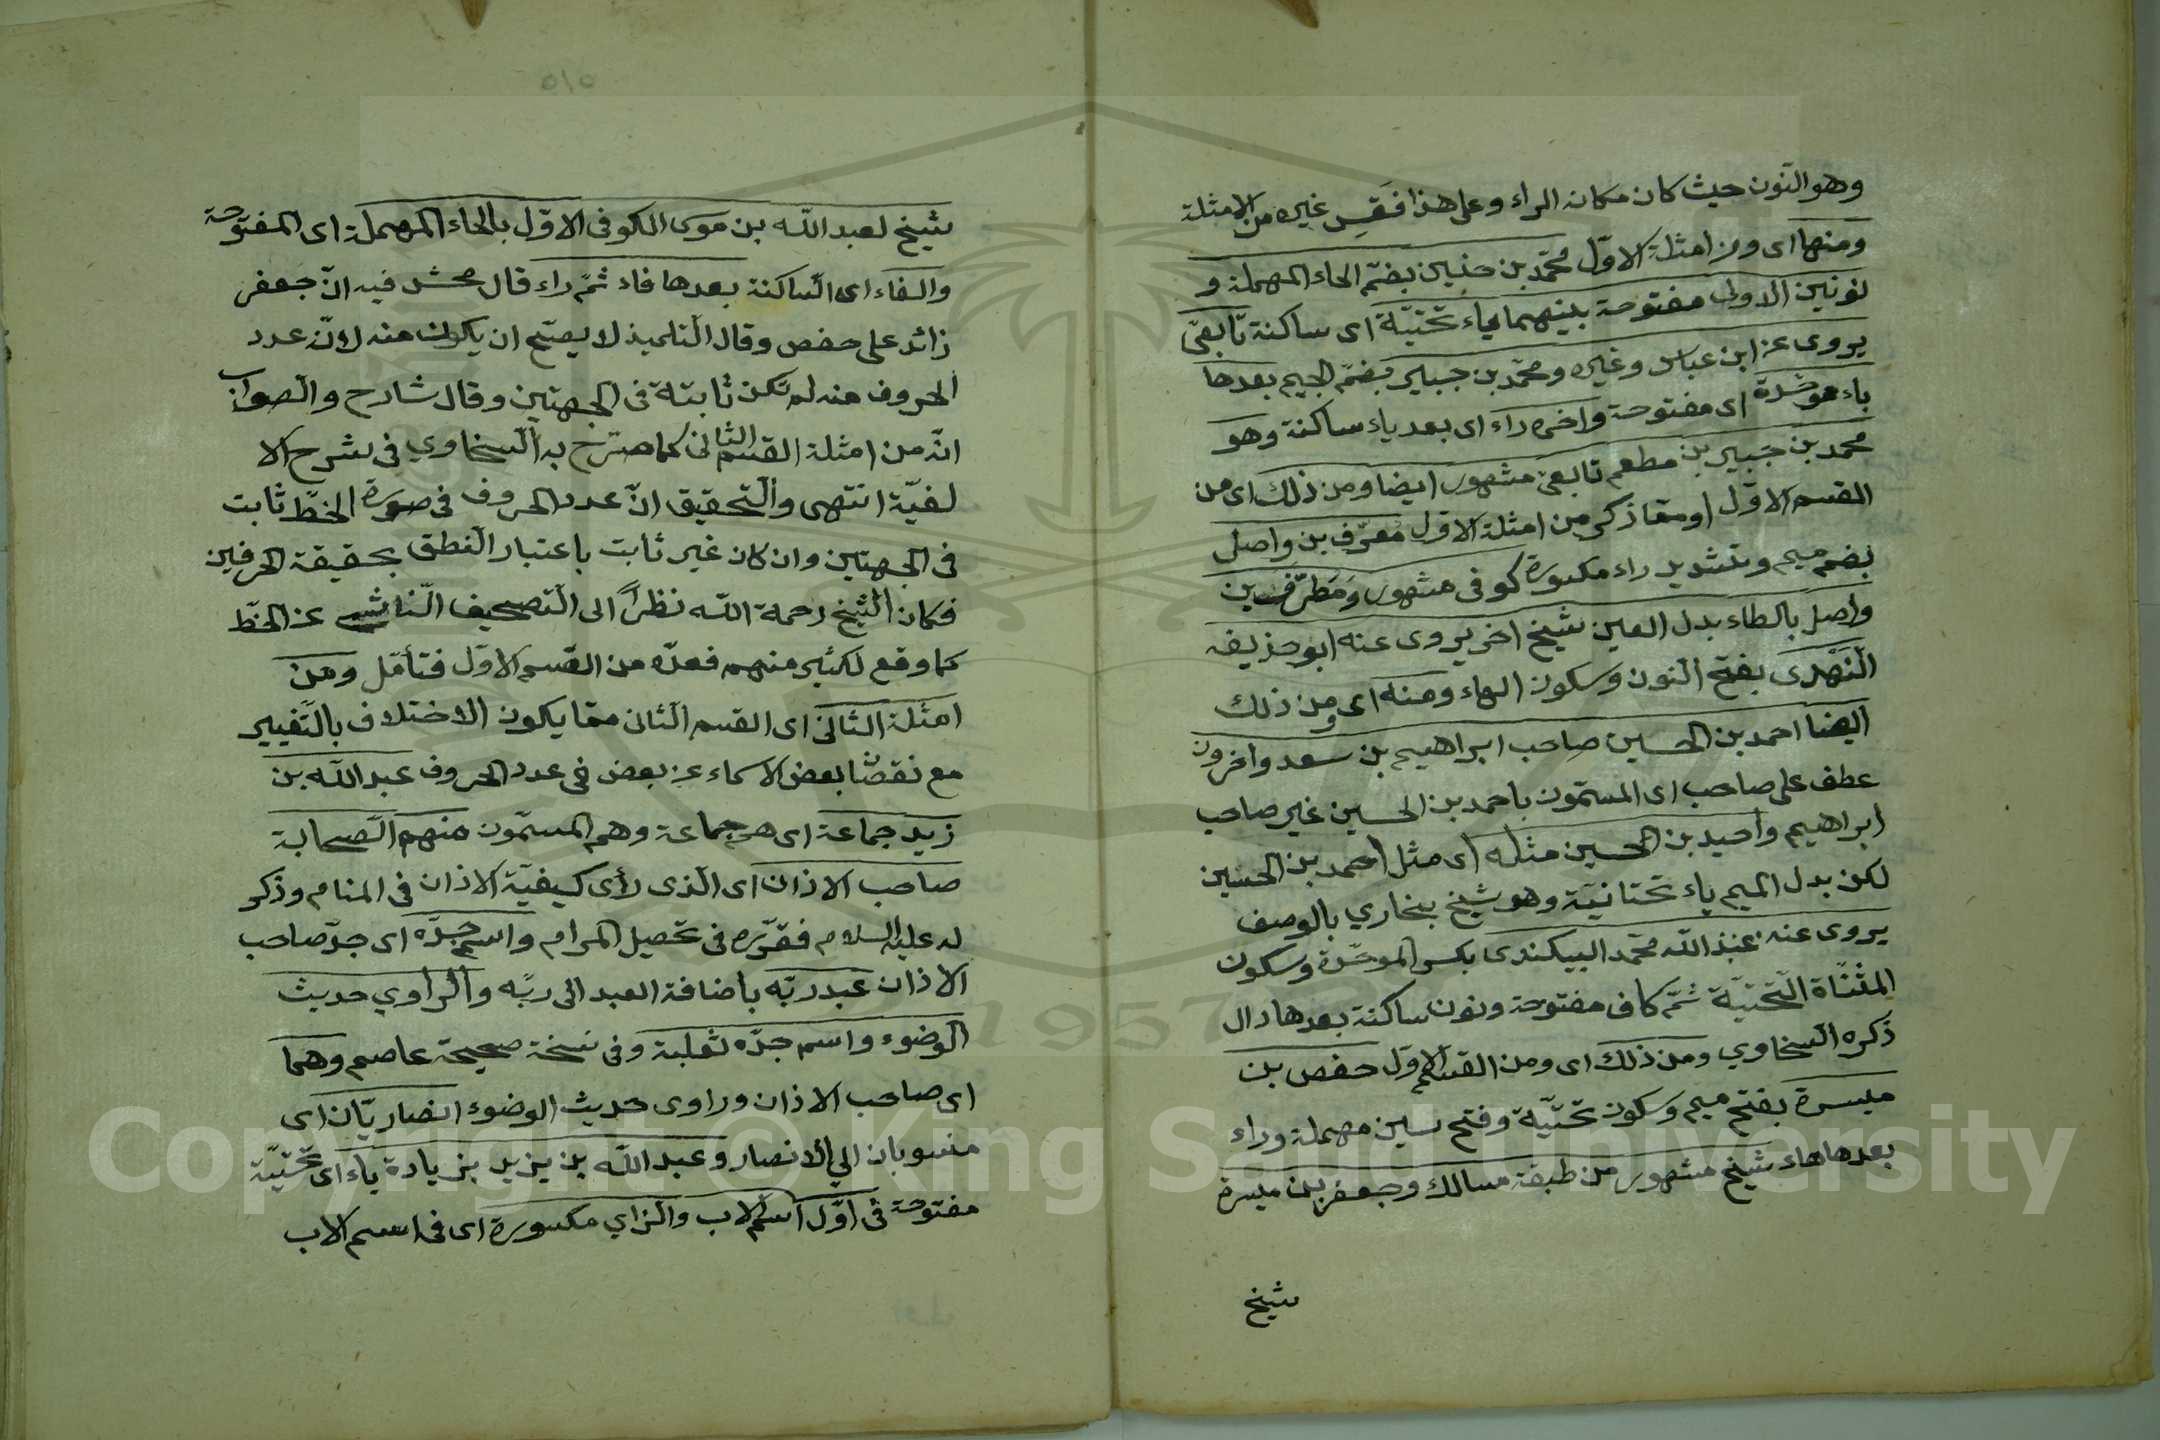 وهو النون حيث كان مكانه الراء وعلى هذا فقس غيره من الامثلة
ومنها اى ومن امثلة الاوّل محمّد بن حنين بضمّ الحاء المهملة و
نونين الاولى مفتوحة بينهما ياء تحتيّة اى ساكنة تابعىّ
يروى عن ابن عباس وغيره ومحمّد بن جبير بضمّ الجيم بعدها
باء موحّدة اى مفتوحة واخره راء اى بعد ياء ساكنة وهو
محمد بن جبير بن مطعم تابعىّ مشهور ايضا ومن ذلك اى من
القسم الاوّل او ممّا ذكر من امثلة الاوّل معرّف بن واصل
بضم ميم وتشديد راء مكسورة كوفى مشهور ومطرّف بن
واصل بالطاء بدل العين شيخ اخر يروى عنه ابو حذيفة
النّهدى بفتح النون وسكون الهاء ومنه اى ومن ذلك
ايضا احمد بن الحسين صاحب ابراهيم بن سعد واخرون
عطف على صاحب اى المسمّون باحمد بن الحسين غير صاحب
ابراهيم واحيد بن الحسين مثله اى مثل احمد بن الحسين
لكن بدل الميم ياء تحتانيّة وهو شيخ بخاري بالوصف
يروى عنه عبد الله محمّد البيكندى بكسر الموحّدة وسكون
المثنّاة التّحتيّة ثمّ كاف مفتوحة ونون ساكنة بعدها دال
ذكره السّخاوي ومن ذلك اى ومن القسم الاوّل حفص بن
ميسرة بفتح ميم وسكون تحتيّة وفتح سين مهملة وراء
بعدها هاء شيخ مشهور من طبقة مالك وجعفر بن ميسرة
شيخ
شيخ لعبد الله بن موسى الكوفى الاوّل بالحاء المهملة اى المفتوحة
والفاء اى الساكنة بعدها فاد ثمّ راء قال محش فيه انّ جعفر
زائد على حفص وقال التلميذ لا يصحّ ان يكون منه لانّ عدد
الحروف منه لم تكن ثابتة فى الجهتين وقال شارح والصواب
انّه من امثلة القسم الثانى كما صرّح به السّخاوي فى شرح الا
لفيّة انتهى والتّحقيق انّ عدد الحروف فى صورة الخطّ ثابت
فى الجهتين وان كان غير ثابت باعتبار النطق بحقيقة الحرفين
فكان الشيخ رحمة الله نظرا الى التصحيف النّاشى عن الخطّ
كما وقع لكثير منهم فعدّه من القسم الاوّل فتأمّل ومن
امثلة الثانى اى القسم الثانى ممّا يكون الاختلاف بالتّغيير
مع نقصان بعض الاسماء عن بعض فى عدد الحروف عبد الله بن
زيد جماعة اى هم جماعة وهم المسمّون منهم الصّحابة
صاحب الاذان اى الّذى رأى كيفيّة الاذان فى المنام وذكر
له عليه السلام فقرّره فى تحصيل المرام واسم جدّه اى جدّ صاحب
الاذان عبد ربّه باضافة العبد الى ربّه والرّاوي حديث
الوضوء واسم جدّه ثعلبة وفى نسخة صحيحة عاصم وهما
اى صاحب الاذان وراوى حديث الوضوء انصاريّان اى
منسوبان الي الانصار وعبد الله بن يزيد بزيادة ياء اى تحتيّة
مفتوحة فى اوّل اسم الاب والزاي مكسورة اى فى اسم الاب
Copyright © King Saud University
1957